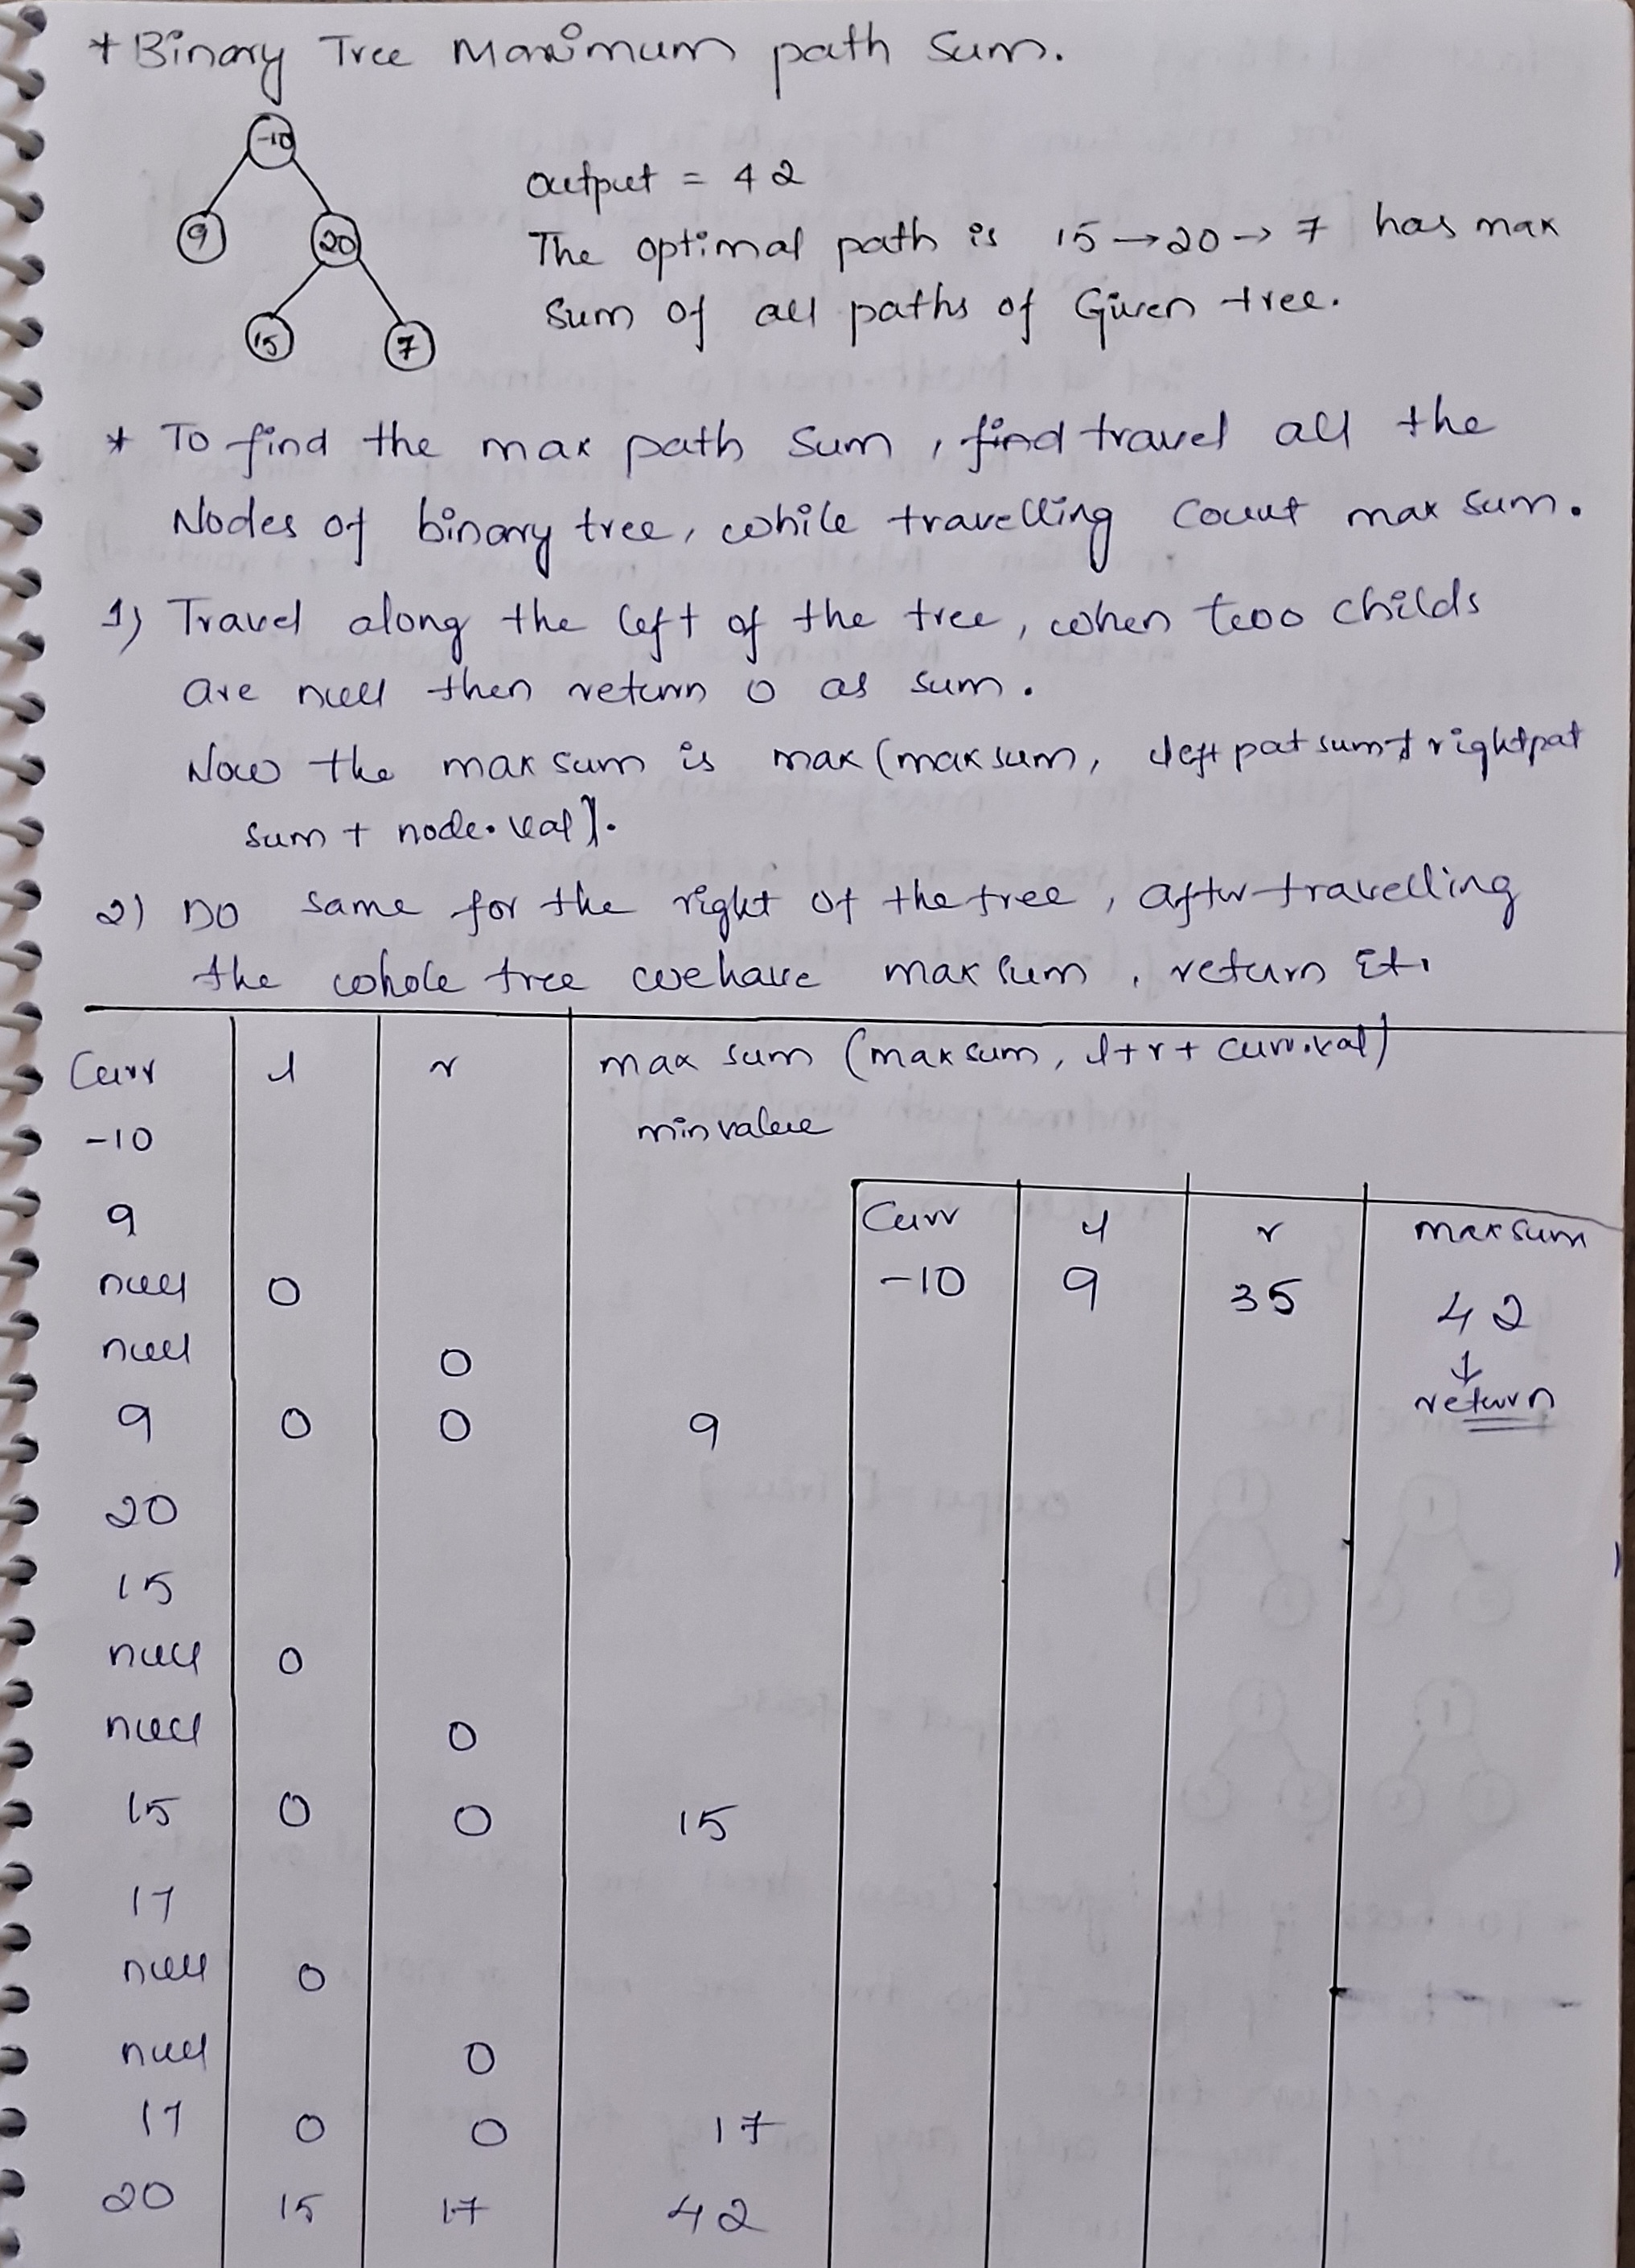 * Binary Tree Maximum path Sum.
-10
9 20
15 7
output = 42
The optimal path is 15 → 20 → 7 has max
sum of all paths of Given tree.
* To find the max path sum, find travel all the
Nodes of binary tree, while travelling count max sum.
1) Travel along the left of the tree, when two childs
are null then return 0 as sum.
Now the max sum is max (maxsum, left pat sum + rightpat
sum + node.val).
2) Do same for the right of the tree, after travelling
the whole tree we have max sum, return it.
Curr l r max sum (maxsum, l+r+ curr.val)
-10 minvalue
9
null 0
null 0
9 0 0 9
20
15
null 0
null 0
15 0 0 15
17
null 0
null 0
17 0 0 17
20 15 17 42
Curr l r maxsum
-10 9 35 42
↓
return